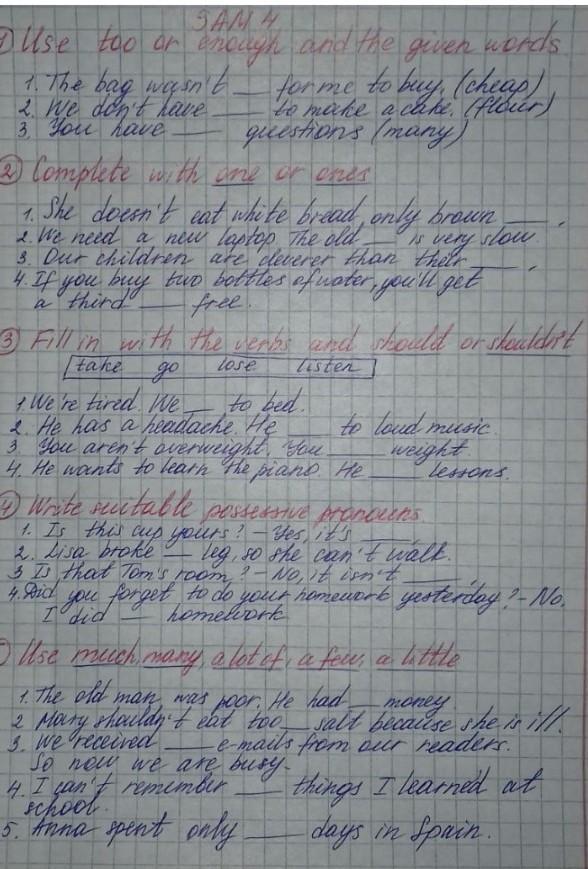 SAM 4
① Use too or enough and the given words
1. The bag wasn't __ for me to buy. (cheap)
2. We don't have ___ to make a cake. (flour)
3. You have ___ questions (many)
② Complete with one or ones
1. She doesn't eat white bread, only brown ___.
2. We need a new laptop. The old __ is very slow.
3. Our children are cleverer than their ___.
4. If you buy two bottles of water, you'll get
a third ___ free.
③ Fill in with the verbs and should or shouldn't
take go lose listen
1. We're tired. We __ to bed.
2. He has a headache. He ___ to loud music.
3. You aren't overweight. You ___ weight.
4. He wants to learn the piano. He ___ lessons.
④ Write suitable possessive pronouns.
1. Is this cup yours? - Yes, it's ___.
2. Lisa broke __ leg, so she can't walk.
3 Is that Tom's room? - No, it isn't ___.
4. Did you forget to do your homework yesterday? - No,
I did __ homework
Use much, many, a lot of, a few, a little
1. The old man was poor. He had __ money
2 Mary shouldn't eat too __ salt because she is ill.
3. We received ___ e-mails from our readers.
So now we are busy.
4. I can't remember ___ things I learned at
school.
5. Anna spent only ___ days in Spain.